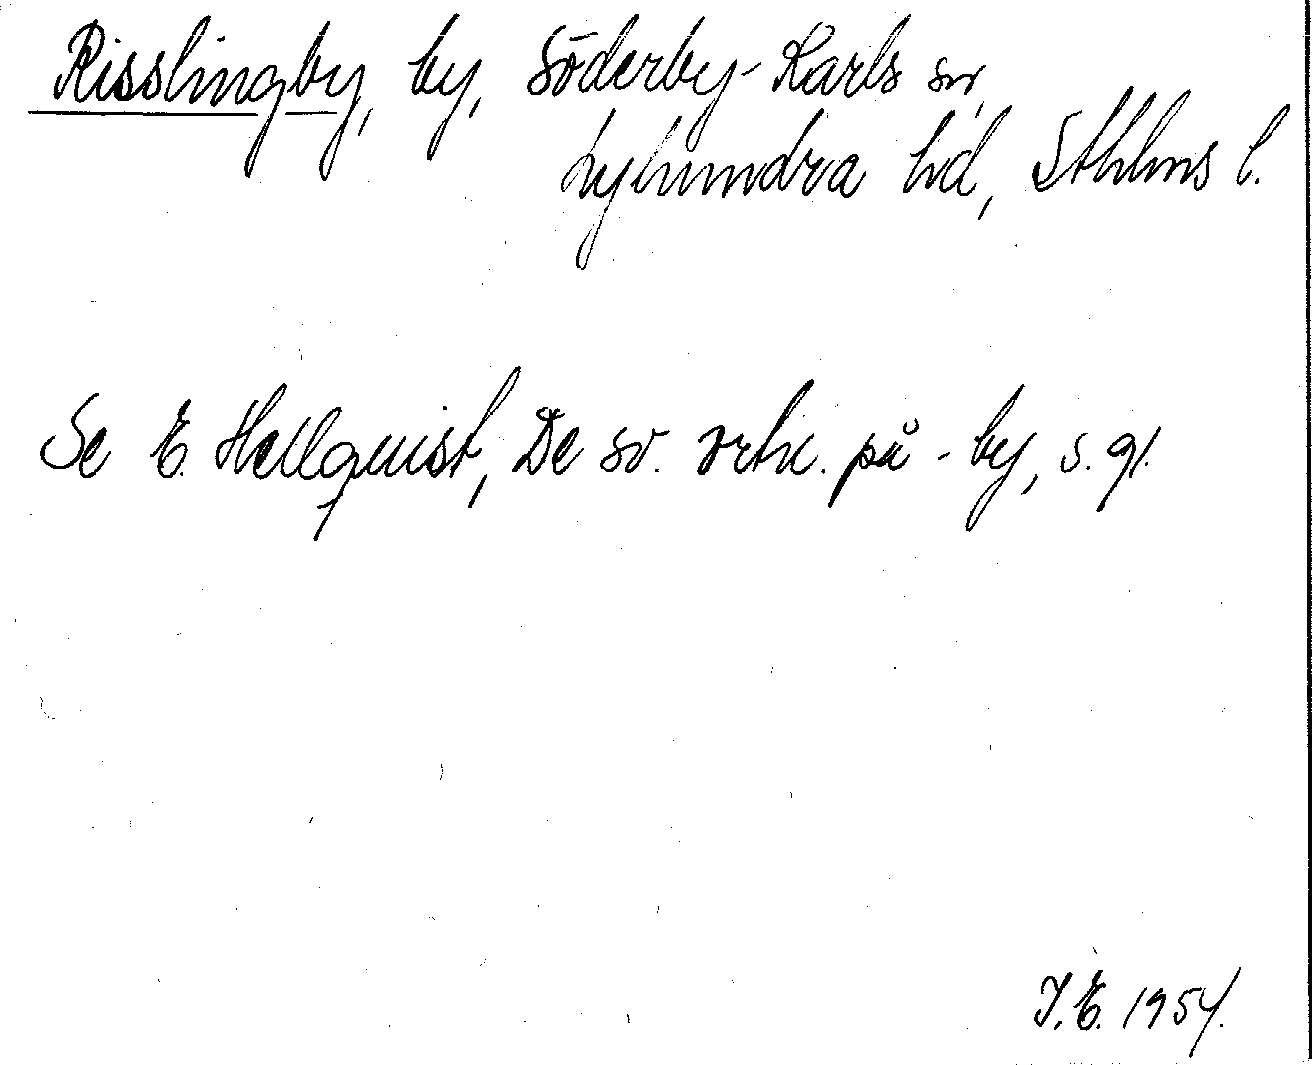 Risslingby, by, Söderby-Karls sn,
Lyhundra hd, Sthlms l.
Se E. Hellquist, De sv. ortn. på -by, s. 91.
I. E. 1954.